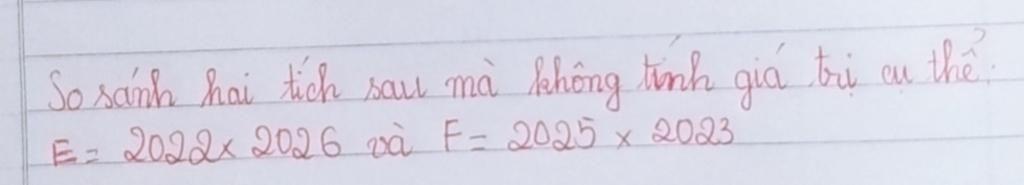 So sánh hai tích sau mà không tính giá trị cụ thể.
E = 2022 x 2026 và F = 2025 x 2023